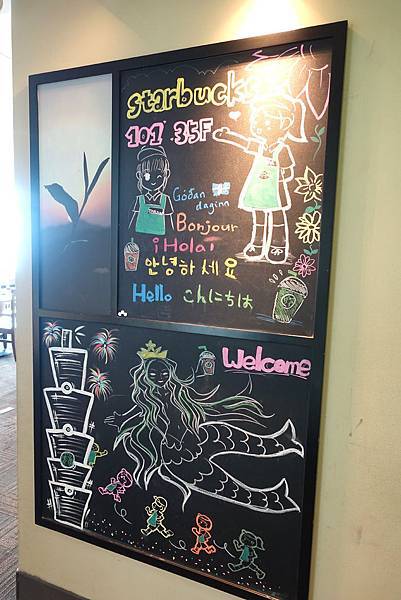 starbucks
101 35F
Góðan
daginn
Bonjour
¡Hola!
안녕하세요
Hello こんにちは
Welcome